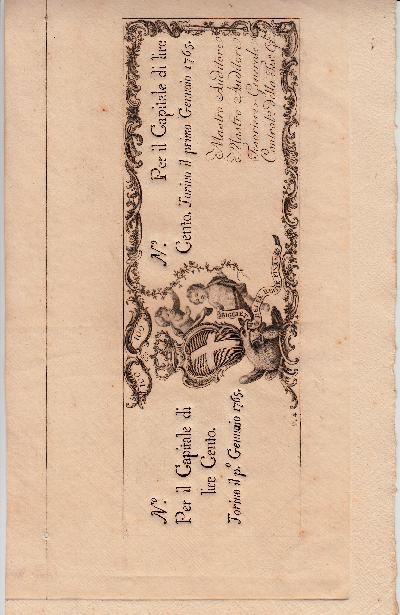 N.º
Per il Capitale di
lire Cento.
Torino il p.º Gennaio 1765.
N.º Per il Capitale di lire
Cento. Torino il primo Gennaio 1765.
Mastro Auditore
Mastro Auditore
Tesoriere Generale